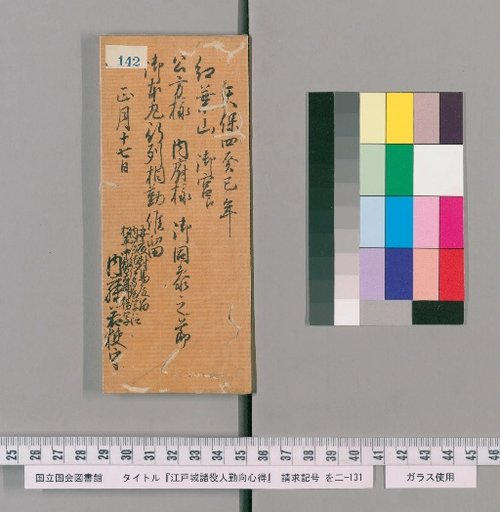 142
天保四癸巳年
紅葉山 御宮江
公方様 内府様 御同参之節
御本丸行列相勤候留
正月十七日
25 26 27 28 29 30 31 32 33 34 35 36 37 38 39 40 41 42 43 44 45 46
国立国会図書館 タイトル『江戸城諸役人勤向心得』 請求記号 を二-131
ガラス使用